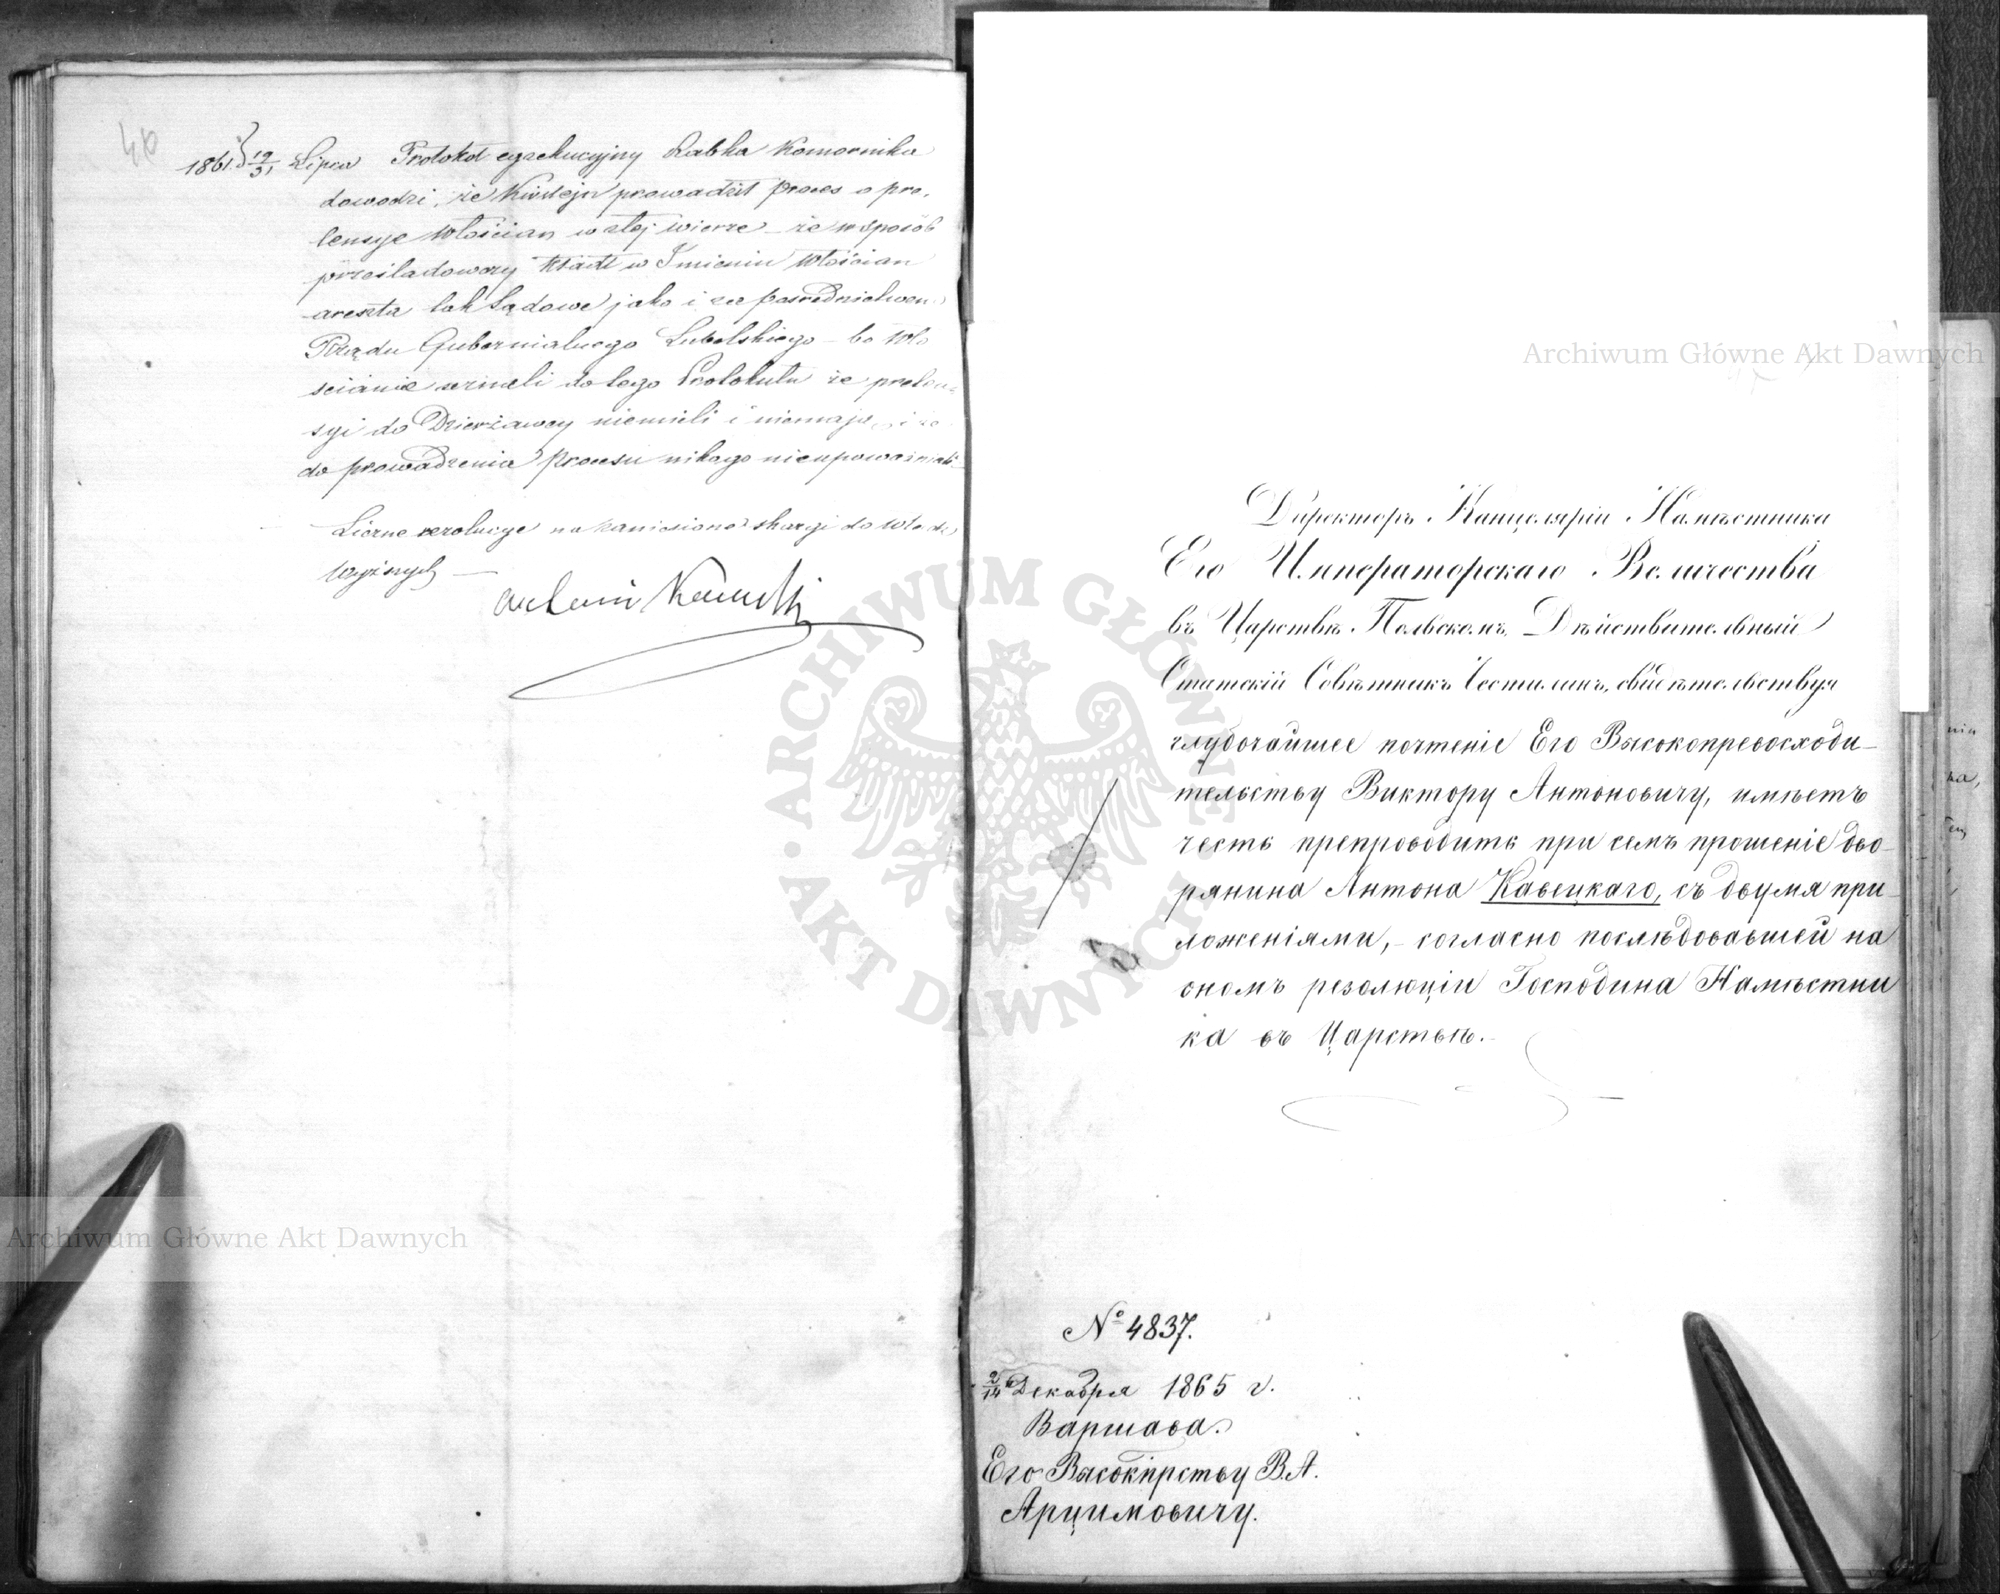 40
1861 19/31 Lipca Protokół egzekucyjny Rabka Komornika
dowodzi, że prowadził proces o pre-
tensye Włościan w złej wierze – że w sposób
prześladowczy kładł w Imieniu Włościan
areszta tak Sądowe jako i za pośrednictwem
Rządu Gubernialnego Lubelskiego – bo Wło
ścianie zeznali do tego Protokułu że preten-
syi do Dzierżawcy niemieli i niemają, i że
do prowadzenia procesu nikogo nieupoważniali –
Liczne rezolucye na zaniesione skargi do Władz
Wyższych –
Antoni Kawecki
Директоръ Канцеляріи Намѣстника
Его Императорскаго Величества
въ Царствѣ Польскомъ, Дѣйствительный
Статскій Совѣтникъ Честилинъ, свидѣтельствуя
глубочайшее почтеніе Его Высокопревосходи-
тельству Виктору Антоновичу, имѣетъ
честь препроводить при семъ прошеніе дво-
рянина Антона Кавецкаго, съ двумя при-
ложеніями, – согласно послѣдовавшей на
ономъ резолюціи Господина Намѣстни
ка въ Царствѣ.
№ 4837.
2/14 Декабря 1865 г.
Варшава.
Его Высокпрству В.А.
Арцимовичу.
Archiwum Główne Akt Dawnych
Archiwum Główne Akt Dawnych
ARCHIWUM GŁÓWNE AKT DAWNYCH